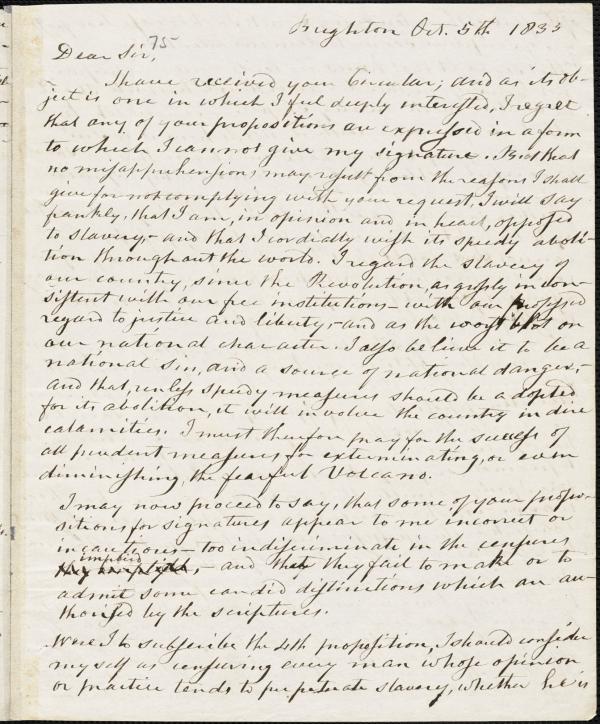 Brighton Oct. 5th 1835
75
Dear Sir,
I have received your Circular; and as its ob-
ject is one in which I feel deeply interested, I regret
that any of your propositions are expressed in a form
to which I cannot give my signature. But that
no misapprehensions may result from the reasons I shall
give for not complying with your request, I will say
frankly, that I am, in opinion and in heart, opposed
to slavery,- and that I cordially wish its speedy aboli-
tion throughout the world. I regard the slavery of
our country, since the Revolution, as grossly incon-
sistent with our free institutions- with our professed
regard to justice and liberty,- and as the worst blot on
our national character. I also believe it to be a
national sin, and a source of national danger,-
and that, unless speedy measures should be adopted
for its abolition, it will involve the country in dire
calamities. I must therefore pray for the success of
all prudent measures for exterminating, or even
diminishing, the fearful Volcano.
I may now proceed to say, that some of your propo-
sitions for signatures appear to me incorrect or
incautious- too indiscriminate in the censures
implied,- and that they fail to make or to
admit some candid distinctions which are au-
thorised by the scriptures.
Were I to subscribe the 4th proposition, I should consider
myself as censuring every man whose opinion
or practice tends to perpetuate slavery, whether he is